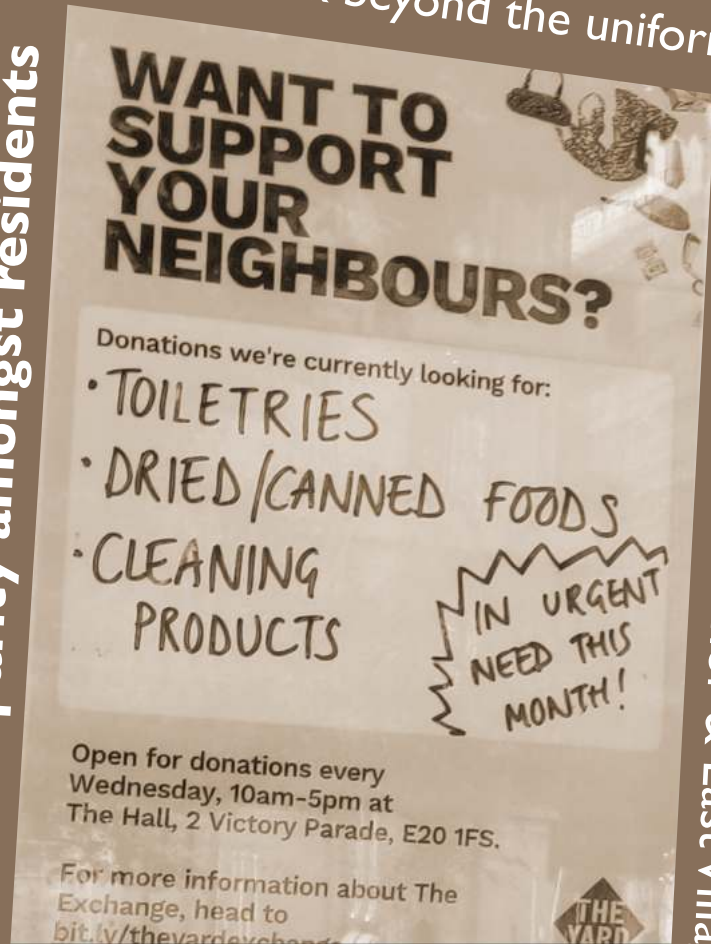 beyond the
amongst residents
WANT TO
SUPPORT
YOUR
NEIGHBOURS?
Donations we're currently looking for:
• TOILETRIES
• DRIED/CANNED FOODS
• CLEANING
PRODUCTS
IN URGENT
NEED THIS
MONTH!
Open for donations every
Wednesday, 10am-5pm at
The Hall, 2 Victory Parade, E20 1FS.
For more information about The
Exchange, head to
THE
YARD
& East